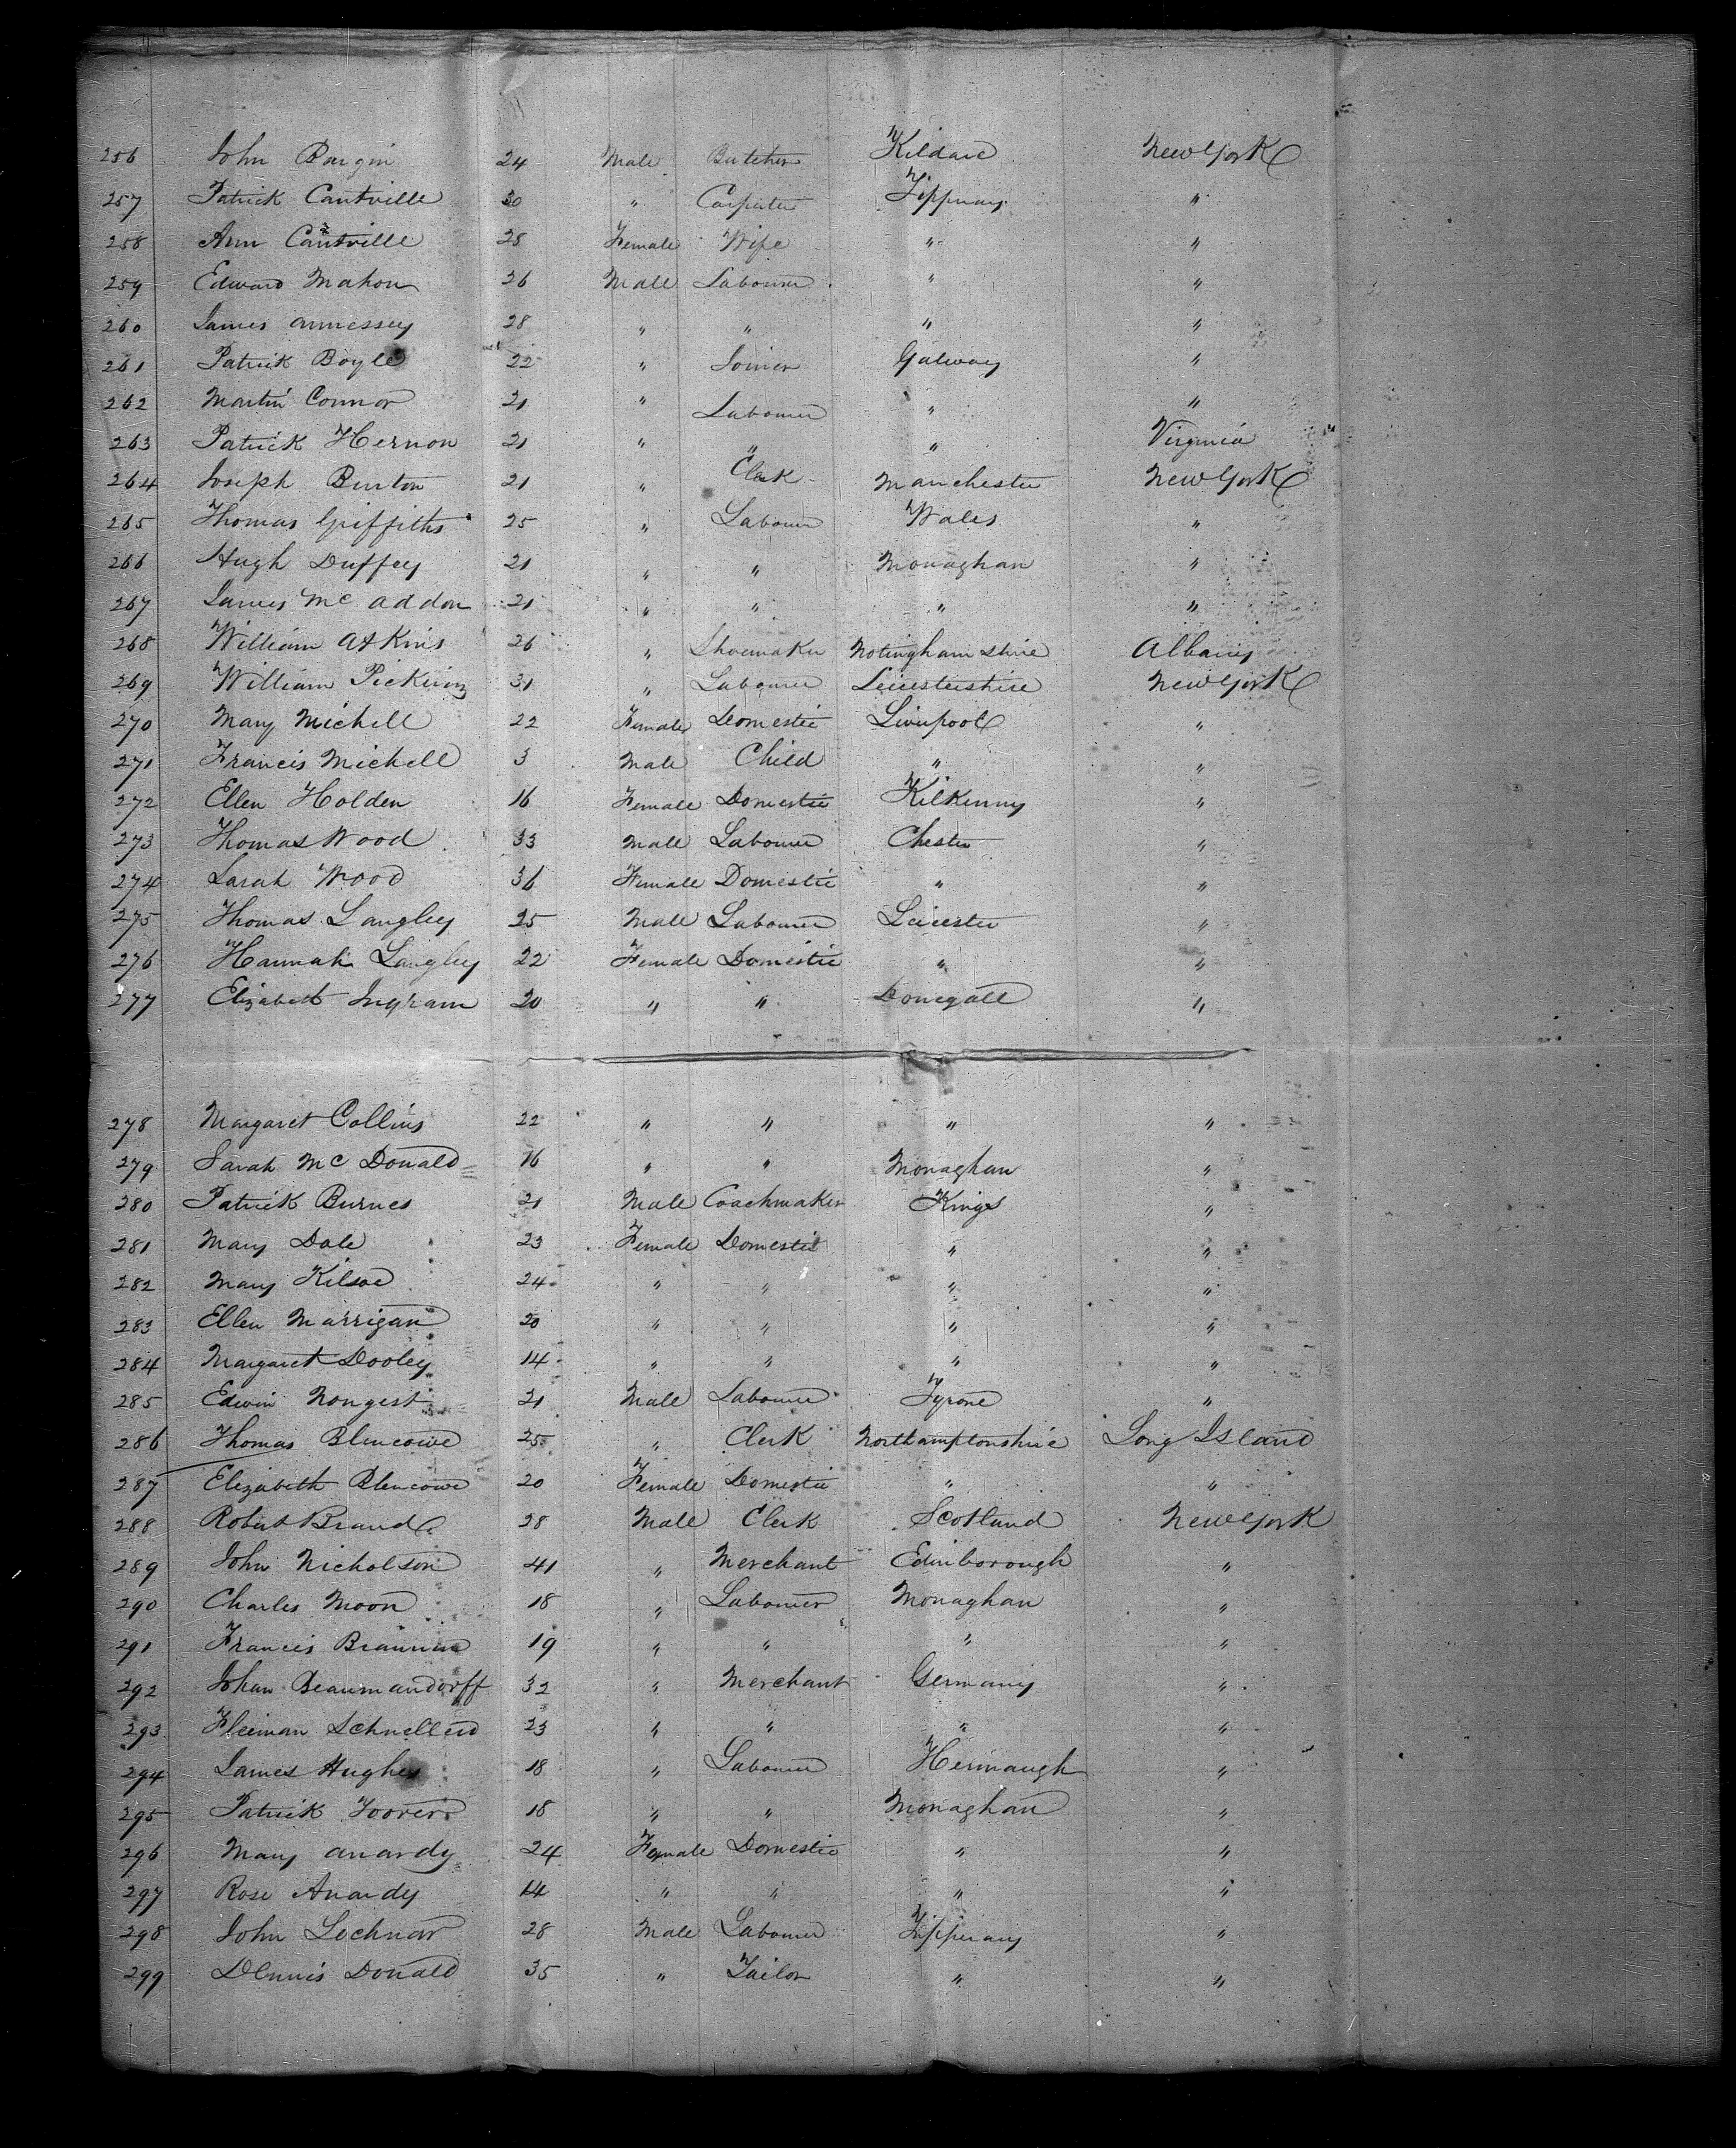 256 John Bargin 24 Male Butcher Kildare New York
257 Patrick Cantville 30 " Carpenter Tipperary "
258 Ann Cantville 28 Female Wife " "
259 Edward Mahon 26 Male Labourer " "
260 James Annessey 28 " " " "
261 Patrick Boyle 22 " Joiner Galway "
262 Martin Connor 21 " Labourer " "
263 Patrick Hernon 21 " " " Virginia
264 Joseph Burton 21 " Clerk Manchester New York
265 Thomas Griffiths 25 " Labourer Wales "
266 Hugh Duffey 21 " " Monaghan "
267 James Mc Addon 21 " " " "
268 William Atkins 26 " Shoemaker Notingham Shire Albany
269 William Pickering 31 " Labourer Leicestershire New York
270 Mary Michell 22 Female Domestic Liverpool "
271 Francis Michell 3 Male Child " "
272 Ellen Holden 16 Female Domestic Kilkenny "
273 Thomas Wood 33 Male Labourer Chester "
274 Sarah Wood 36 Female Domestic " "
275 Thomas Langley 25 Male Labourer Leicester "
276 Hannah Langley 22 Female Domestic " "
277 Elizabeth Ingram 20 " " Donegall "
278 Margaret Collins 22 " " " "
279 Sarah Mc Donald 16 " " Monaghan "
280 Patrick Burnes 21 Male Coachmaker Kings "
281 Mary Dale 23 Female Domestic " "
282 Mary 24 " " " "
283 Ellen Marrigan 20 " " " "
284 Margaret Dooley 14 " " " "
285 Edwin Nongest 21 Male Labourer Tyrone "
286 Thomas Blencowe 25 " Clerk Northamptonshire Long Island
287 Elizabeth Blencowe 20 Female Domestic " "
288 Robert Brand 28 Male Clerk Scotland New York
289 John Nicholson 41 " Merchant Edinborough "
290 Charles Moon 18 " Labourer Monaghan "
291 Francis 19 " " " "
292 Johan Beaumandorff 32 " Merchant Germany "
293 23 " " " "
294 James Hughes 18 " Labourer Hermaugh "
295 Patrick 18 " " Monaghan "
296 Mary Anardy 24 Female Domestic " "
297 Rose Anardy 14 " " " "
298 John Lochnar 28 Male Labourer Tipperary "
299 Dennis Donald 35 " Tailor " "